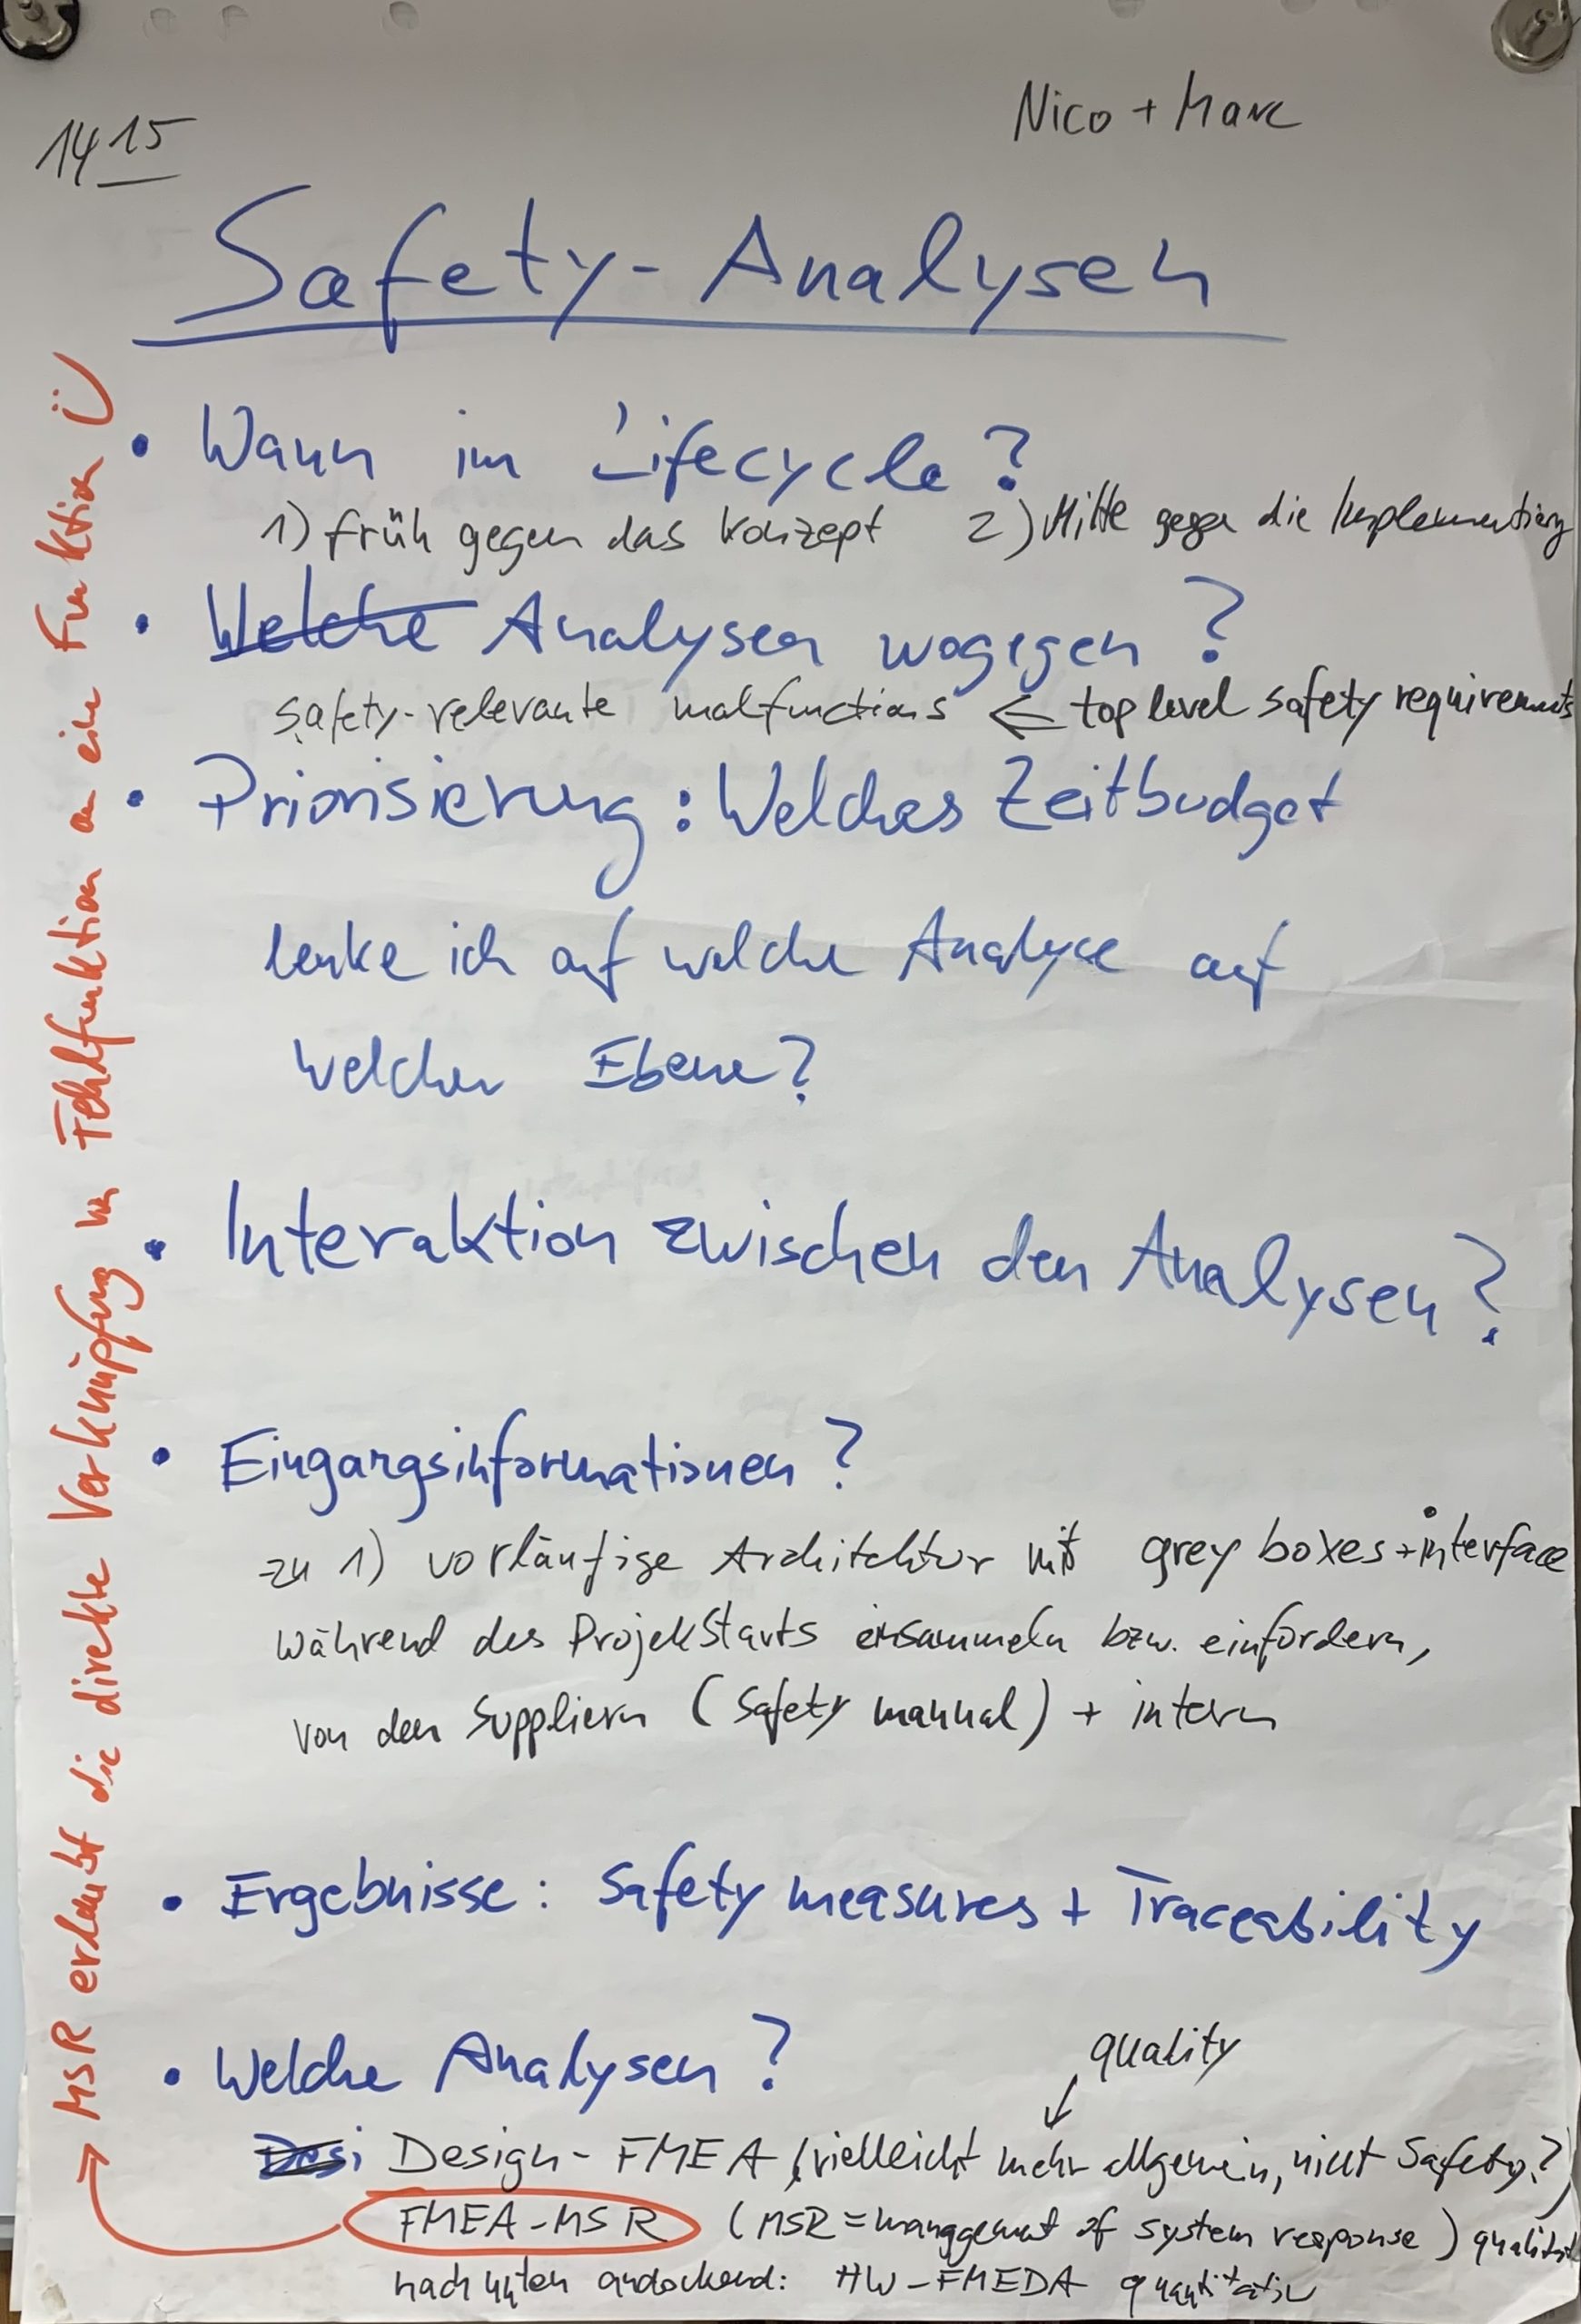 Nico + Marc
14 15
Safety-Analysen
• Wann im Lifecycle?
1) früh gegen das Konzept 2) Mitte gegen die Implementierung
• Welche Analysen wogegen?
safety-relevante malfunctions ⇐ top level safety requirements
• Priorisierung: Welches Zeitbudget
lenke ich auf welche Analyse auf
welcher Ebene?
• Interaktion zwischen den Analysen?
• Eingangsinformationen?
zu 1) vorläufige Architektur mit grey boxes + interface
während des Projektstarts einsammeln bzw. einfordern,
von den Suppliern (Safety manual) + intern
• Ergebnisse: Safety measures + Traceability
• Welche Analysen?
quality
↓
Desi Design-FMEA (vielleicht mehr allgemein, nicht Safety?)
FMEA-MSR (MSR = management of system response) qualitativ
nach unten andockend: HW-FMEDA quantitativ
→ MSR erlaubt die direkte Verknüpfung von Fehlfunktion an eine Funktion Ü